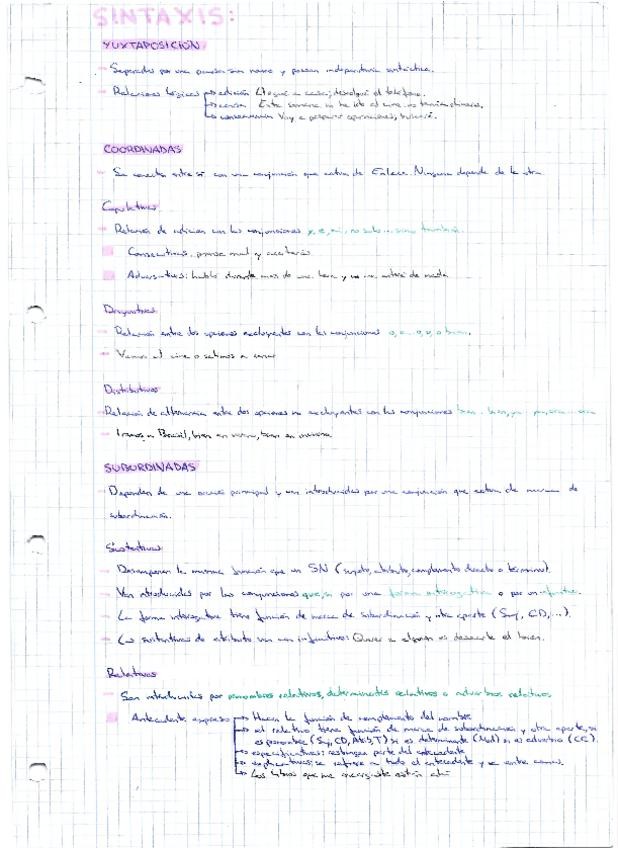 SINTAXIS:
YUXTAPOSICIÓN
Separadas por una pausa sin nexo y poseen independencia sintáctica.
Relaciones lógicas → adición Llegué a casa; descolgué el teléfono.
→ causa Esta semana no he ido al cine, no tenía dinero.
→ consecuencia Voy a preparar oposiciones,
COORDINADAS
Se conectan entre sí con una conjunción que actúa de Enlace. Ninguna depende de la otra
Copulativas
Relación de adición con las conjunciones y, e, ni, no solo... sino también.
Consecutivas:
Adversativas: habló durante más de una hora y no
Disyuntivas
Relación entre dos opciones excluyentes con las conjunciones o, o... o, u, o bien.
Vamos al cine o salimos a cenar
Distributivas
Relación de alternancia entre dos opciones no excluyentes con las conjunciones bien... bien, ya... ya, ora... ora
Iremos a Brasil, bien en
SUBORDINADAS
Dependen de una oración principal y van introducidas por una conjunción que actúa de marca de
subordinación.
Sustantivas
Desempeñan la misma función que un SN (sujeto, atributo, complemento directo o término).
Van introducidas por las conjunciones que, si por una forma interrogativa o por un infinitivo.
La forma interrogativa tiene función de marca de subordinación y otra aparte (Suj, CD,...).
Las sustantivas de atributo van con infinitivos: Querer a alguien es desearle el bien.
Relativas
Son introducidas por pronombres relativos, determinantes relativos o adverbios relativos.
Antecedente expreso → Hacen la función de complemento del nombre
→ el relativo tiene función de marca de subordinación y otra aparte, si
es pronombre (Suj, CD, Atrib, T) si es determinante (Mod) si es adverbio (CC).
→ especificativas: restringen parte del antecedente
→ explicativas: se refiere a todo el antecedente y va entre comas.
→ Los libros que me están ahí